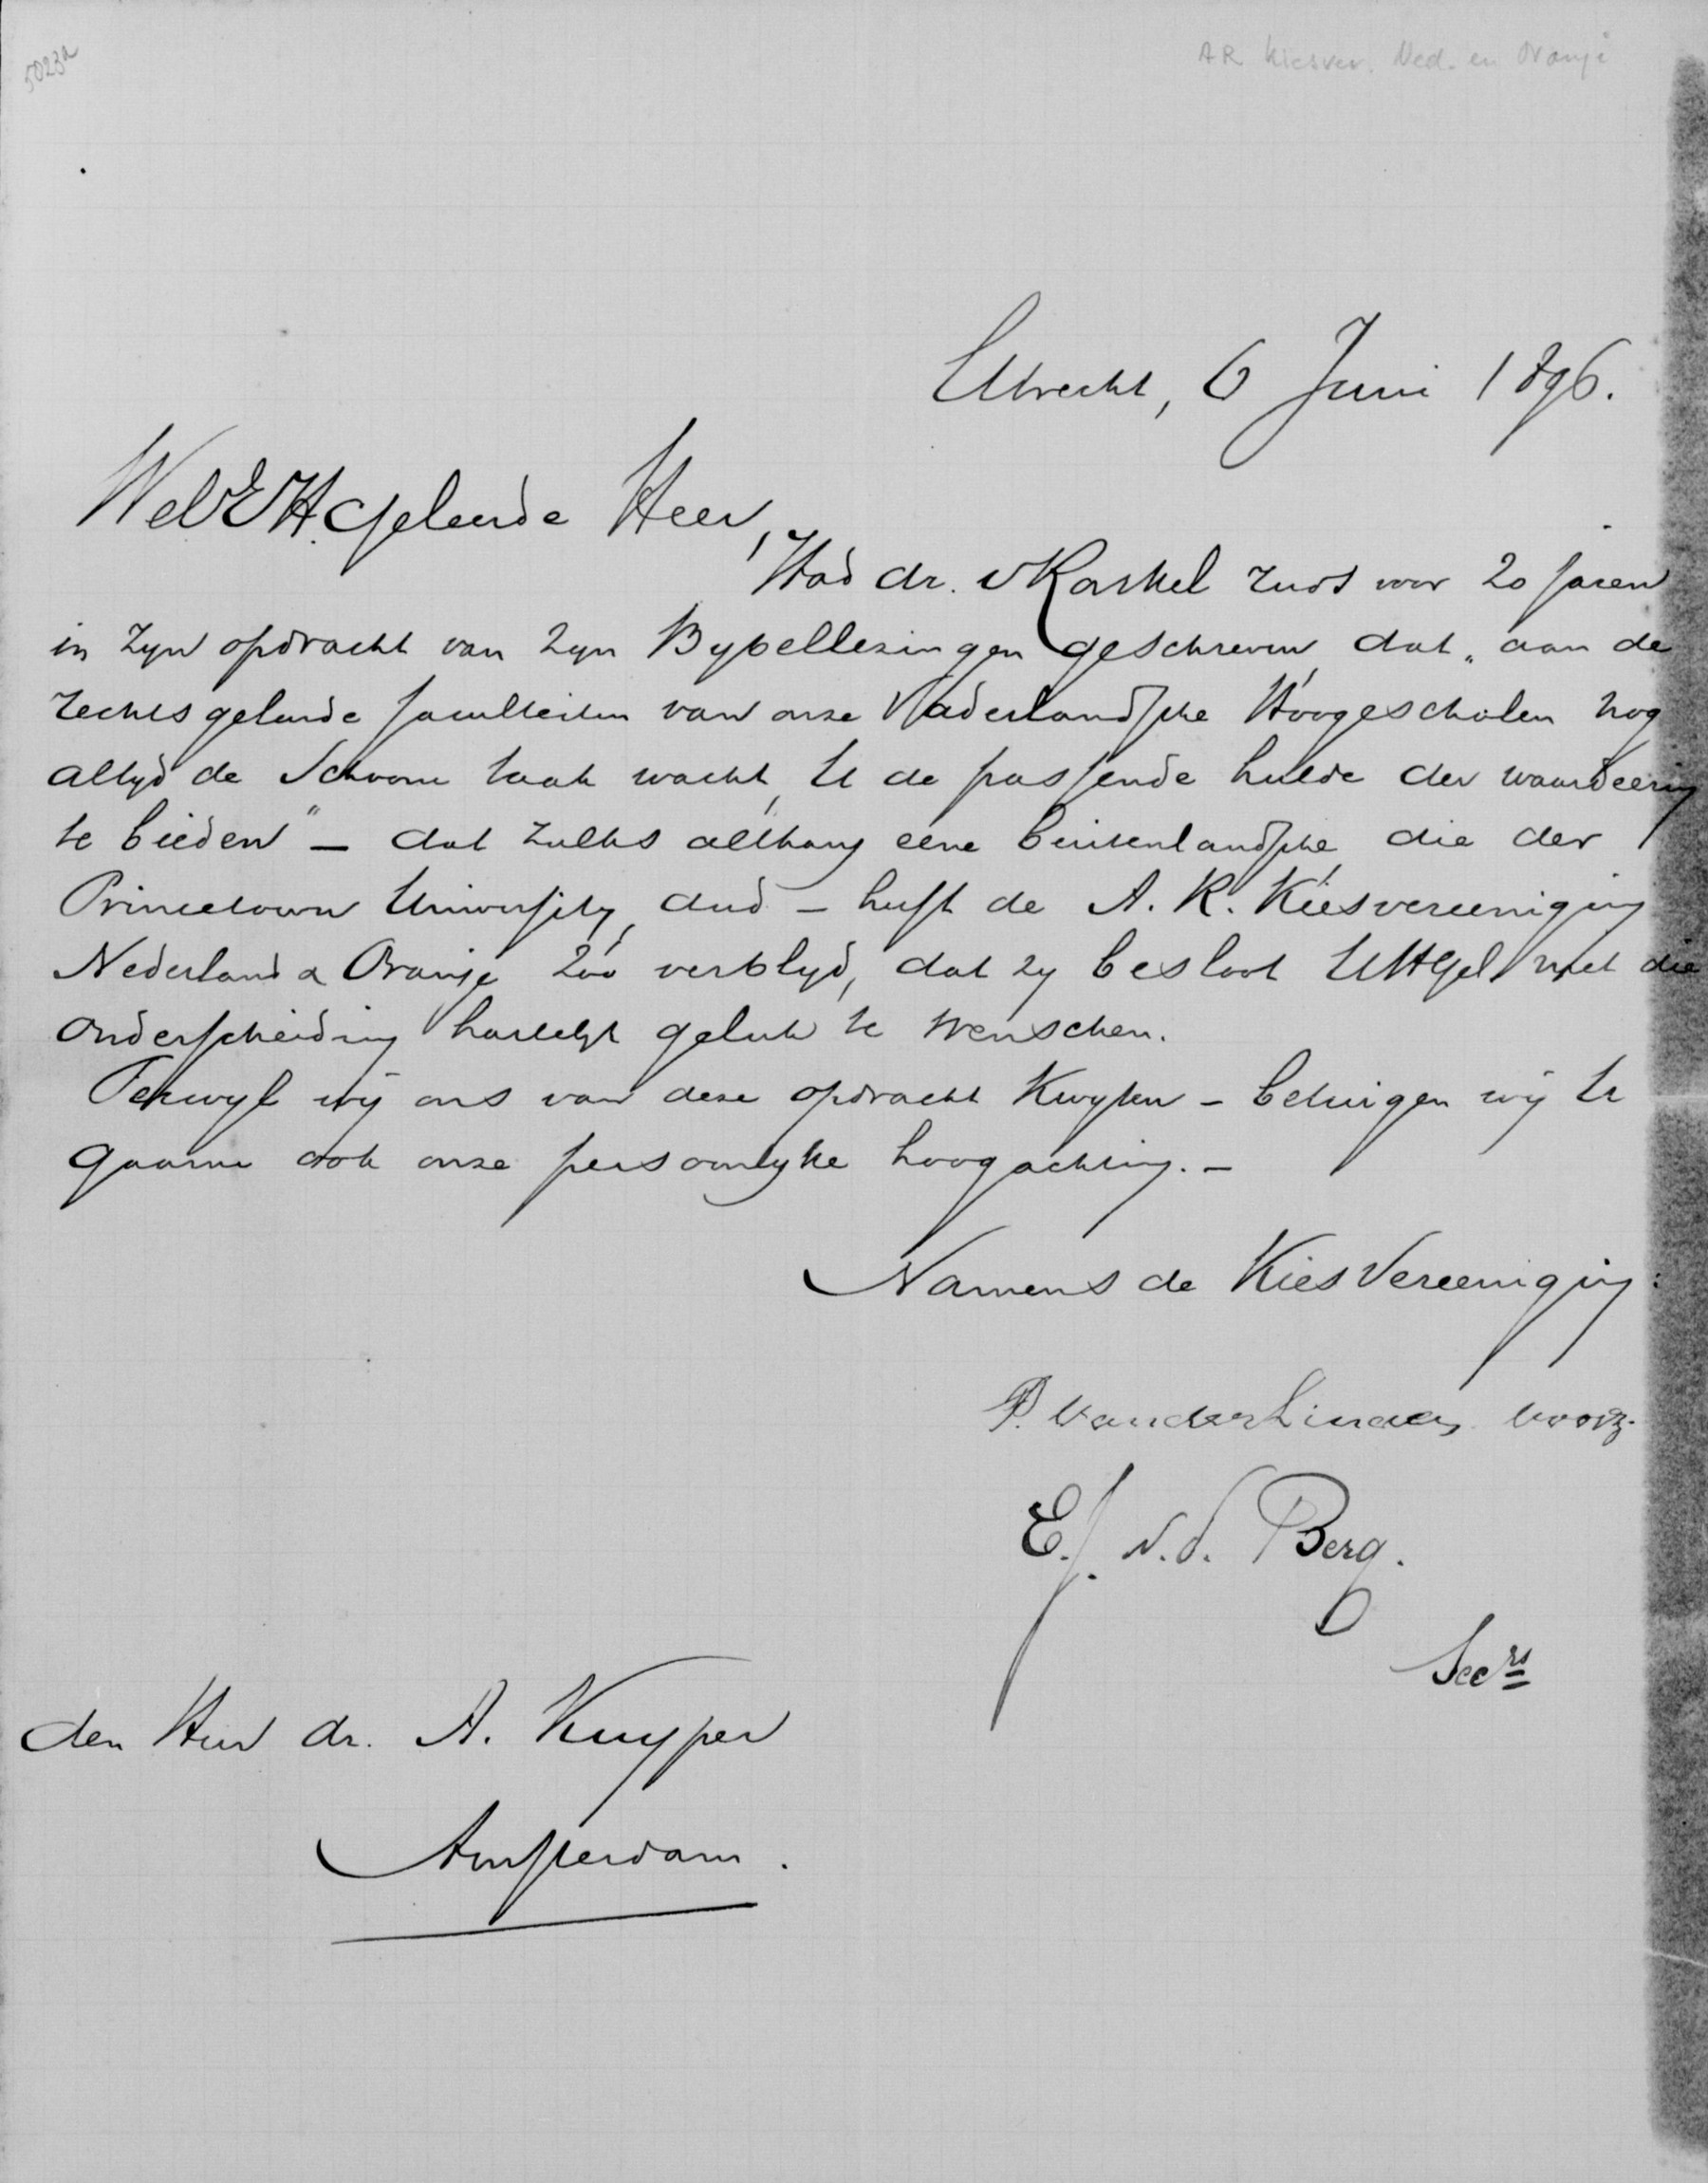 5023a
AR kiesver. Ned. en Oranje
Utrecht, 6 Juni 1896.
WelEH.Geleerde Heer,
Had dr. v Ronkel reeds voor 20 jaren
in zyn opdracht van zyn Bybellezingen geschreven, dat „aan de
rechtsgeleerde faculteiten van onze Vaderlandsche Hoogescholen nog
altyd de schoone taak wacht, U de passende hulde der waardeering
te bieden" – dat zulks althans eene buitenlandsche, die der
Princetown University, deed – heeft de A. R. Kiesvereeniging
Nederland & Oranje zóó verblyd, dat zy besloot UHGel met die
onderscheiding hartelyk geluk te wenschen.
Terwyl wij ons van deze opdracht kwyten – betuigen wij U
gaarne ook onze persoonlyke hoogachting. –
Namens de KiesVereeniging:
P. van der Linden voorz.
E.J. v.d. Berg.
Secrs
den Heer dr. A. Kuyper
Amsterdam.